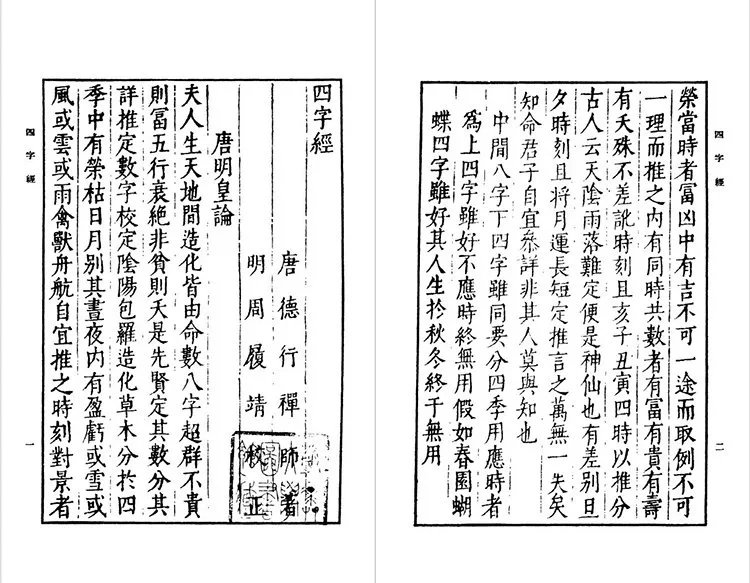 四字經
唐德行禪師著
明周履靖校正
唐明皇論
夫人生天地間造化皆由命數八字超群不貴
則冨五行衰絶非貧則夭是先賢定其數分其
詳推定數字校定陰陽包羅造化草木分於四
季中有榮枯日月別其晝夜内有盈虧或雪或
風或雲或雨禽獸舟航自宜推之時刻對景者
四字經
一
四字經
二
榮當時者冨凶中有吉不可一途而取例不可
一理而推之内有同時共數者有冨有貴有壽
有夭殊不差訛時刻且亥子丑寅四時以推分
古人云天陰雨落難定便是神仙也有差別旦
夕時刻且將月運長短定推言之萬無一失矣
知命君子自宜叅詳非其人莫與知也
中間八字下四字雖同要分四季用應時者
為上四字雖好不應時終無用假如春園蝴
蝶四字雖好其人生於秋冬終于無用